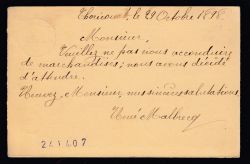 le 29 Octobre 1898.
Monsieur,
Veuillez ne pas nous
de marchandises; nous avons décidé
d'attendre.
Recevez, Monsieur, nos sincères salutations
René
241407